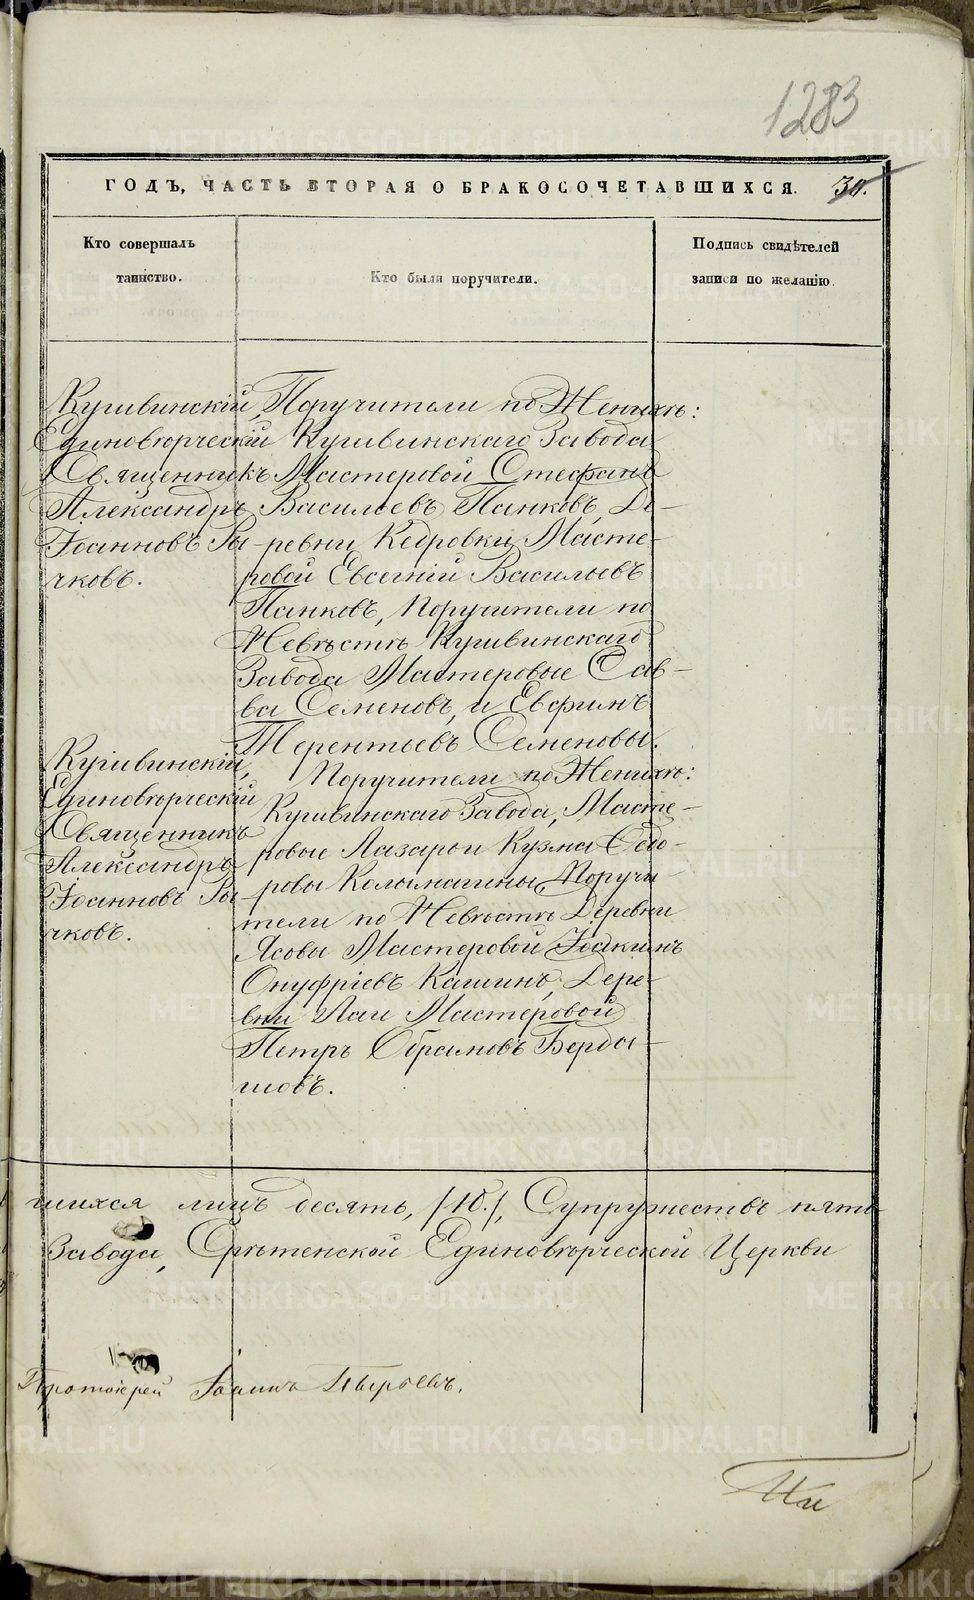 1283
ГОДЪ, ЧАСТЬ ВТОРАЯ О БРАКОСОЧЕТАВШИХСЯ. 30.
Кто совершалъ
таинство.
Кто были поручители.
Подпись свидѣтелей
записи по желанію.
Кушвинскій,
Единовѣрческій
Священникъ
Александръ
Іоанновъ Ры-
чковъ.
Поручители по Женихѣ:
Кушвинскаго Завода
Мастеровой Стефанъ
Васильевъ Панковъ, Де-
ревни Кедровки Масте-
ровой Евгеній Васильевъ
Панковъ, Поручители по
Невѣстѣ Кушвинскаго
Завода Мастеровые Сав-
ва Семеновъ, и Евфимъ
Терентьевъ Семеновы.
Кушвинскій,
Единовѣрческій
Священникъ
Александръ
Іоанновъ Ры-
чковъ.
Поручители по Женихѣ:
Кушвинскаго Завода, Масте-
ровые Лазарь и Кузма Седо-
ровы Колымагины, Поручи-
тели по Невѣстѣ Деревни
Ясовы Мастеровой Іоакимъ
Онуфріевъ Кашинъ, Дере-
вни Лаи Мастеровой
Петръ Обрамовъ Берда-
шовъ.
шихся лицъ десять, /10./, Супружествъ пять
Завода, Срѣтенской Единовѣрческой Церкви
Протоіерей Іоаннъ
METRIKI.GASO-URAL.RU